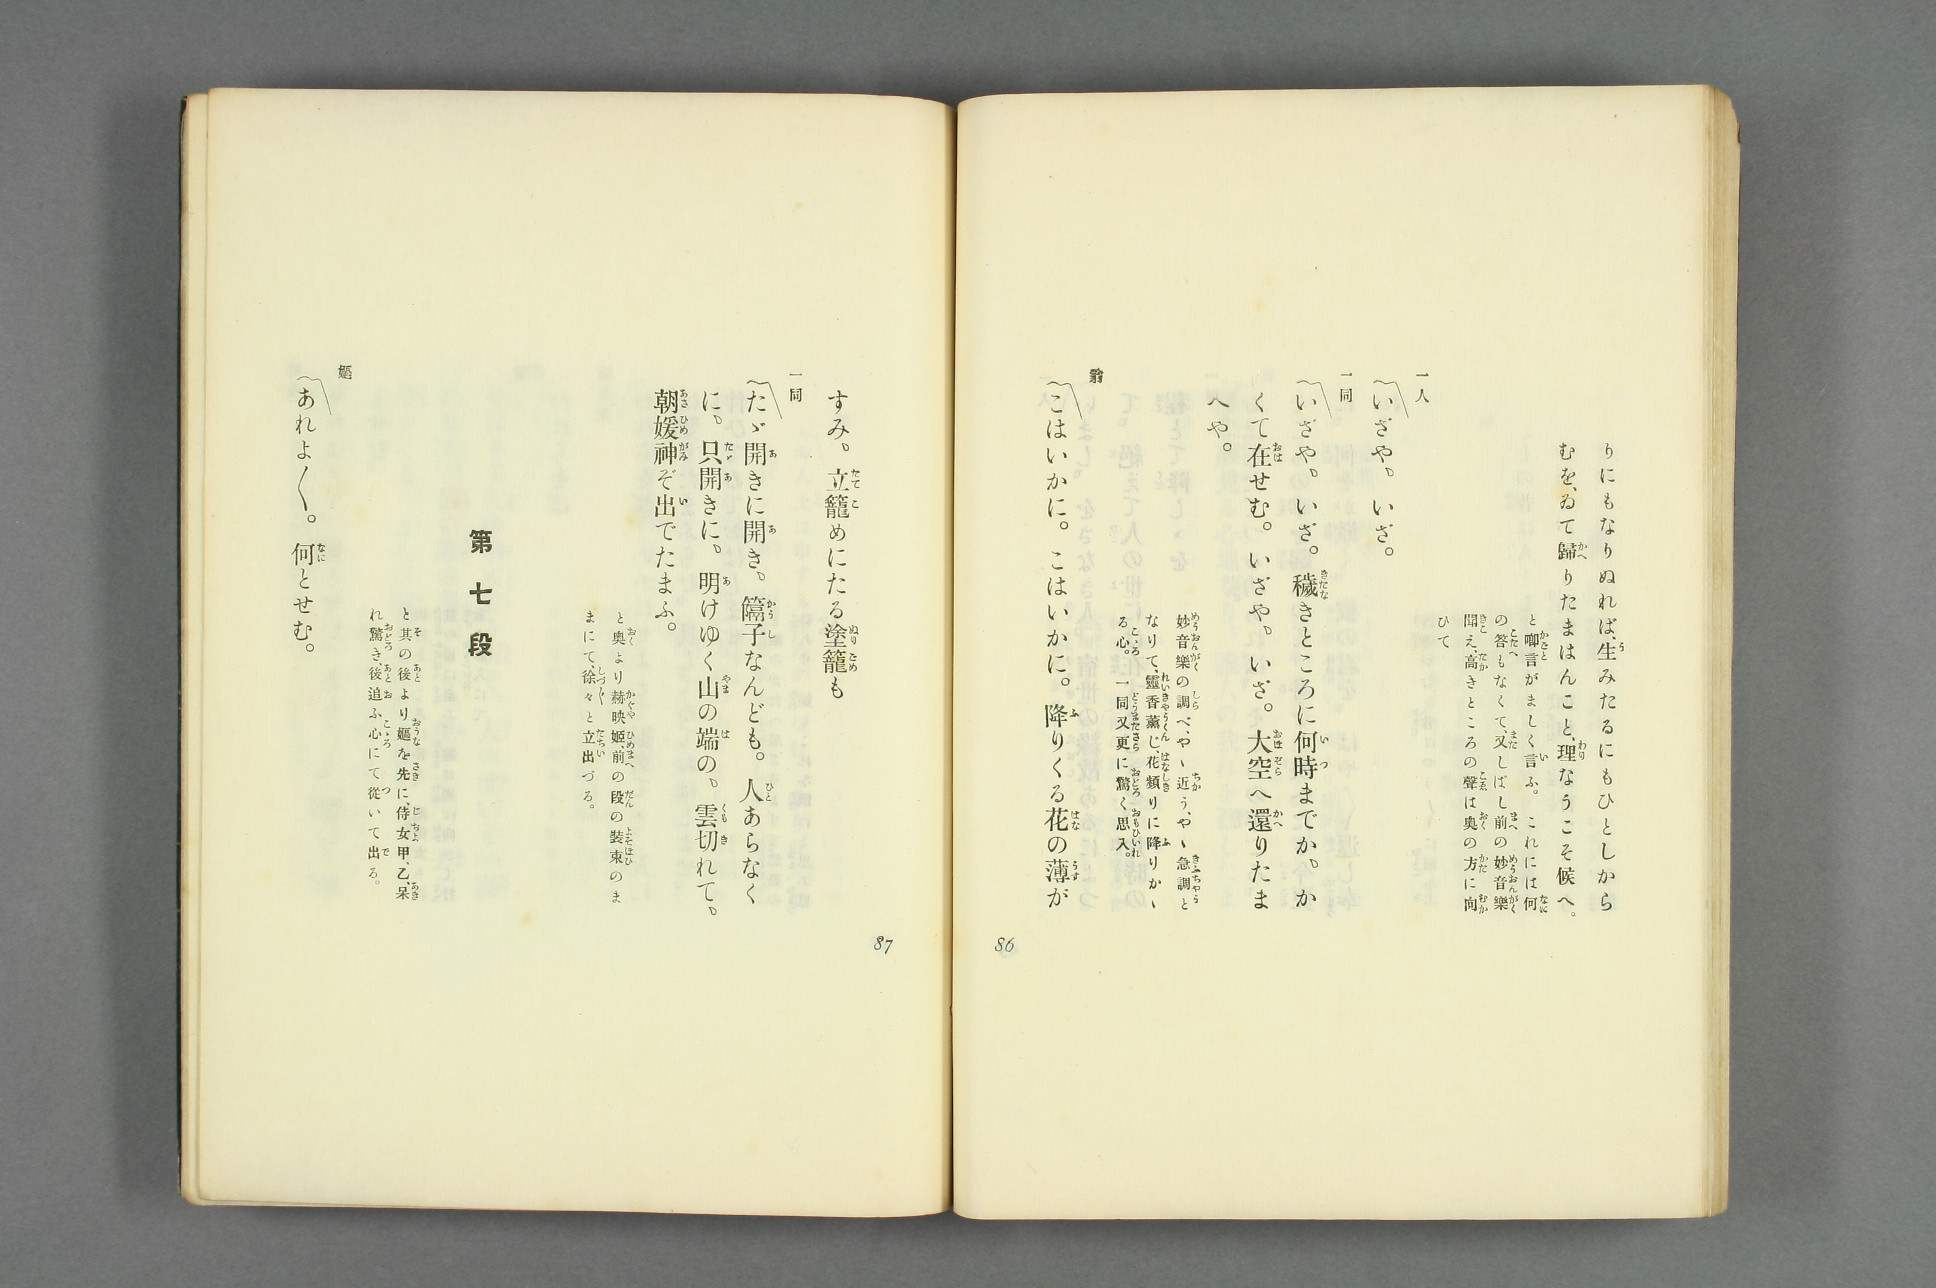 りにもなりぬれば、生みたるにもひとしから
むを、ゐて歸りたまはんこと、理なうこそ候へ。
と喞言がましく言ふ。これには何
の答もなくて、又しばし前の妙音樂
聞え、高きところの聲は奥の方に向
ひて
一人
いざや、いざ。
一同
いざや、いざ。穢きところに何時までか、か
くて在せむ。いざや、いざ。大空へ還りたま
へや。
妙音樂の調べ、やゝ近う、やゝ急調と
なりて、靈香薫じ、花頻りに降りかゝ
る心。一同又更に驚く思入。
翁
こはいかに。こはいかに。降りくる花の薄が
86
すみ。立籠めにたる塗籠も
一同
たゞ開きに開き、簷子なんども。人あらなく
に。只開きに、明けゆく山の端の、雲切れて、
朝媛神ぞ出でたまふ。
と奥より赫映姫、前の段の裝束のま
まにて、徐々と立出づる。
第七段
と其の後より嫗を先に、侍女甲、乙、呆
れ驚き、後追ふ心にて從いて出る。
嫗
あれよ〱。何とせむ。
87